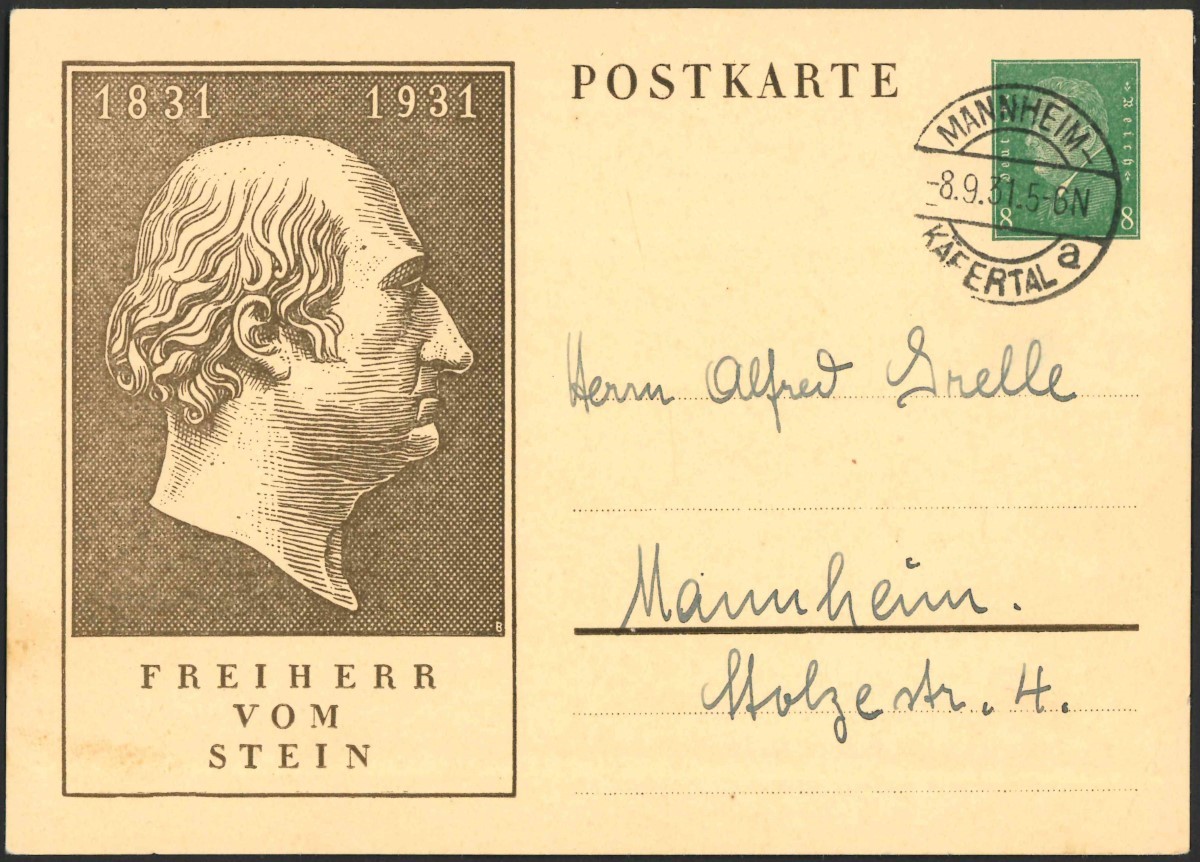 1831 1931
FREIHERR
VOM
STEIN
B
POSTKARTE
Reich
8 8
MANNHEIM-
-8.9.31.5-6N
KÄFERTAL a
Herrn Alfred Grelle
Mannheim.
Stolzestr. 4.